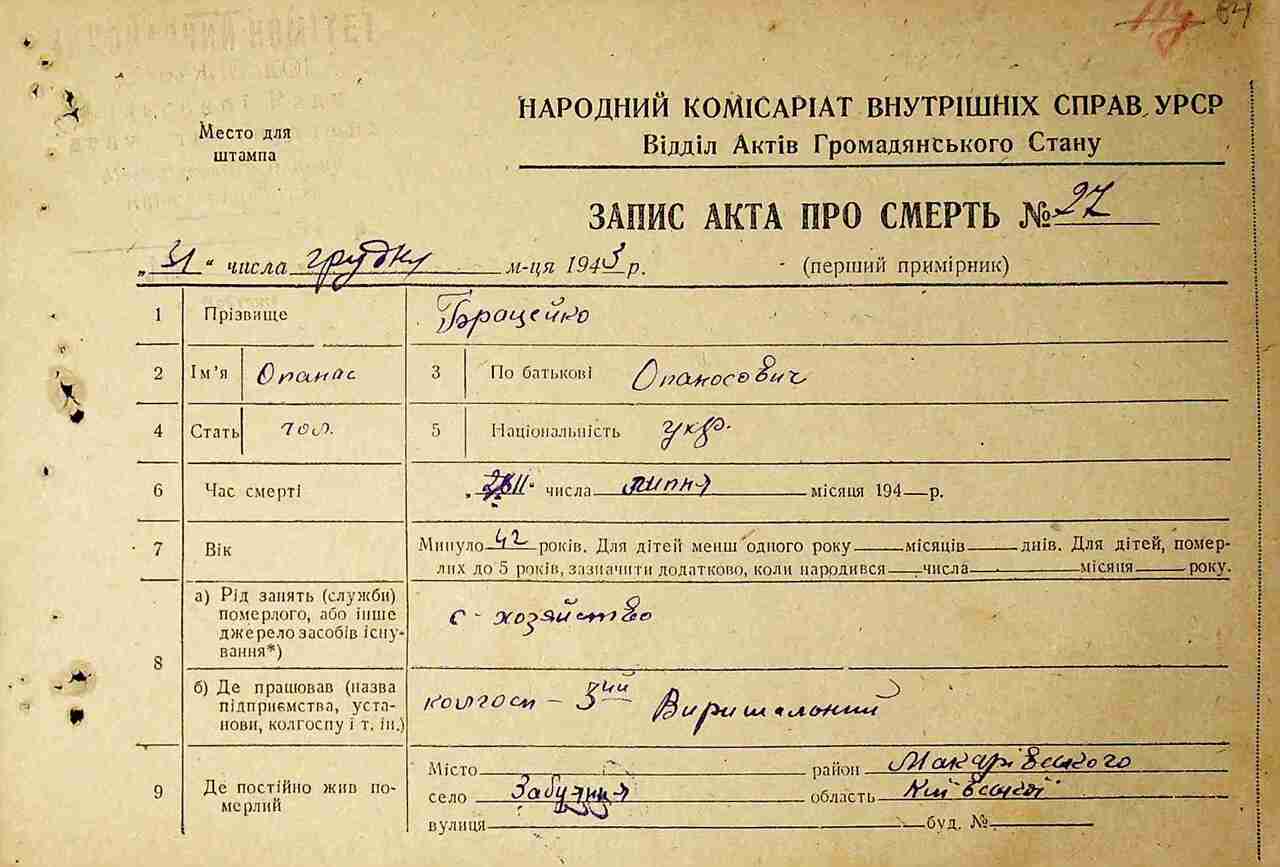 64
Место для
штампа
НАРОДНИЙ КОМІСАРІАТ ВНУТРІШНІХ СПРАВ УРСР
Відділ Актів Громадянського Стану
ЗАПИС АКТА ПРО СМЕРТЬ № 27
„31“ числа грудня м-ця 1943 р. (перший примірник)
1 Прізвище Брацейко
2 Ім'я Опанас 3 По батькові Опаносович
4 Стать чол. 5 Національність укр.
6 Час смерті числа липня місяця 194 р.
7 Вік Минуло 42 років. Для дітей менш одного року місяців днів. Для дітей, помер-
лих до 5 років, зазначити додатково, коли народився числа місяця року.
8 а) Рід занять (служби) с-хозяйство
померлого, або інше
джерело засобів існу-
вання*)
б) Де працював (назва колгосп - 3ий Виришалоний
підприємства, уста-
нови, колгоспу і т. ін.)
9 Де постійно жив по-
мерлий
Місто район Макарівського
село область Київської
вулиця буд. №